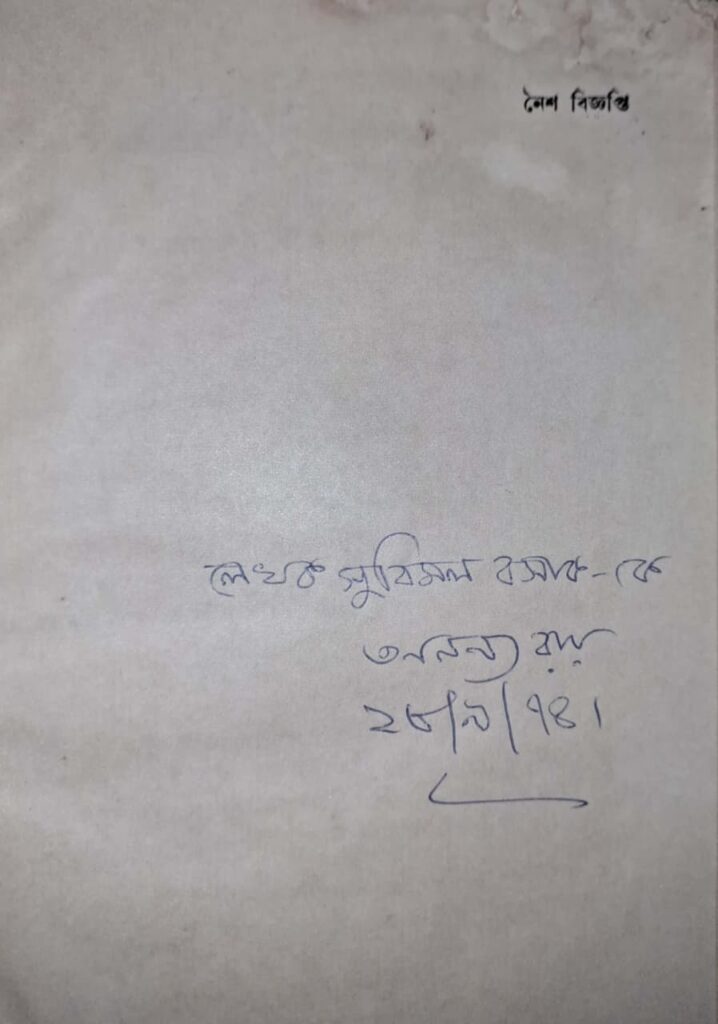 নৈশ বিজ্ঞপ্তি
লেখক সুবিমল বসাক-কে
অনন্য রায়
২৮/৯/৭৪।